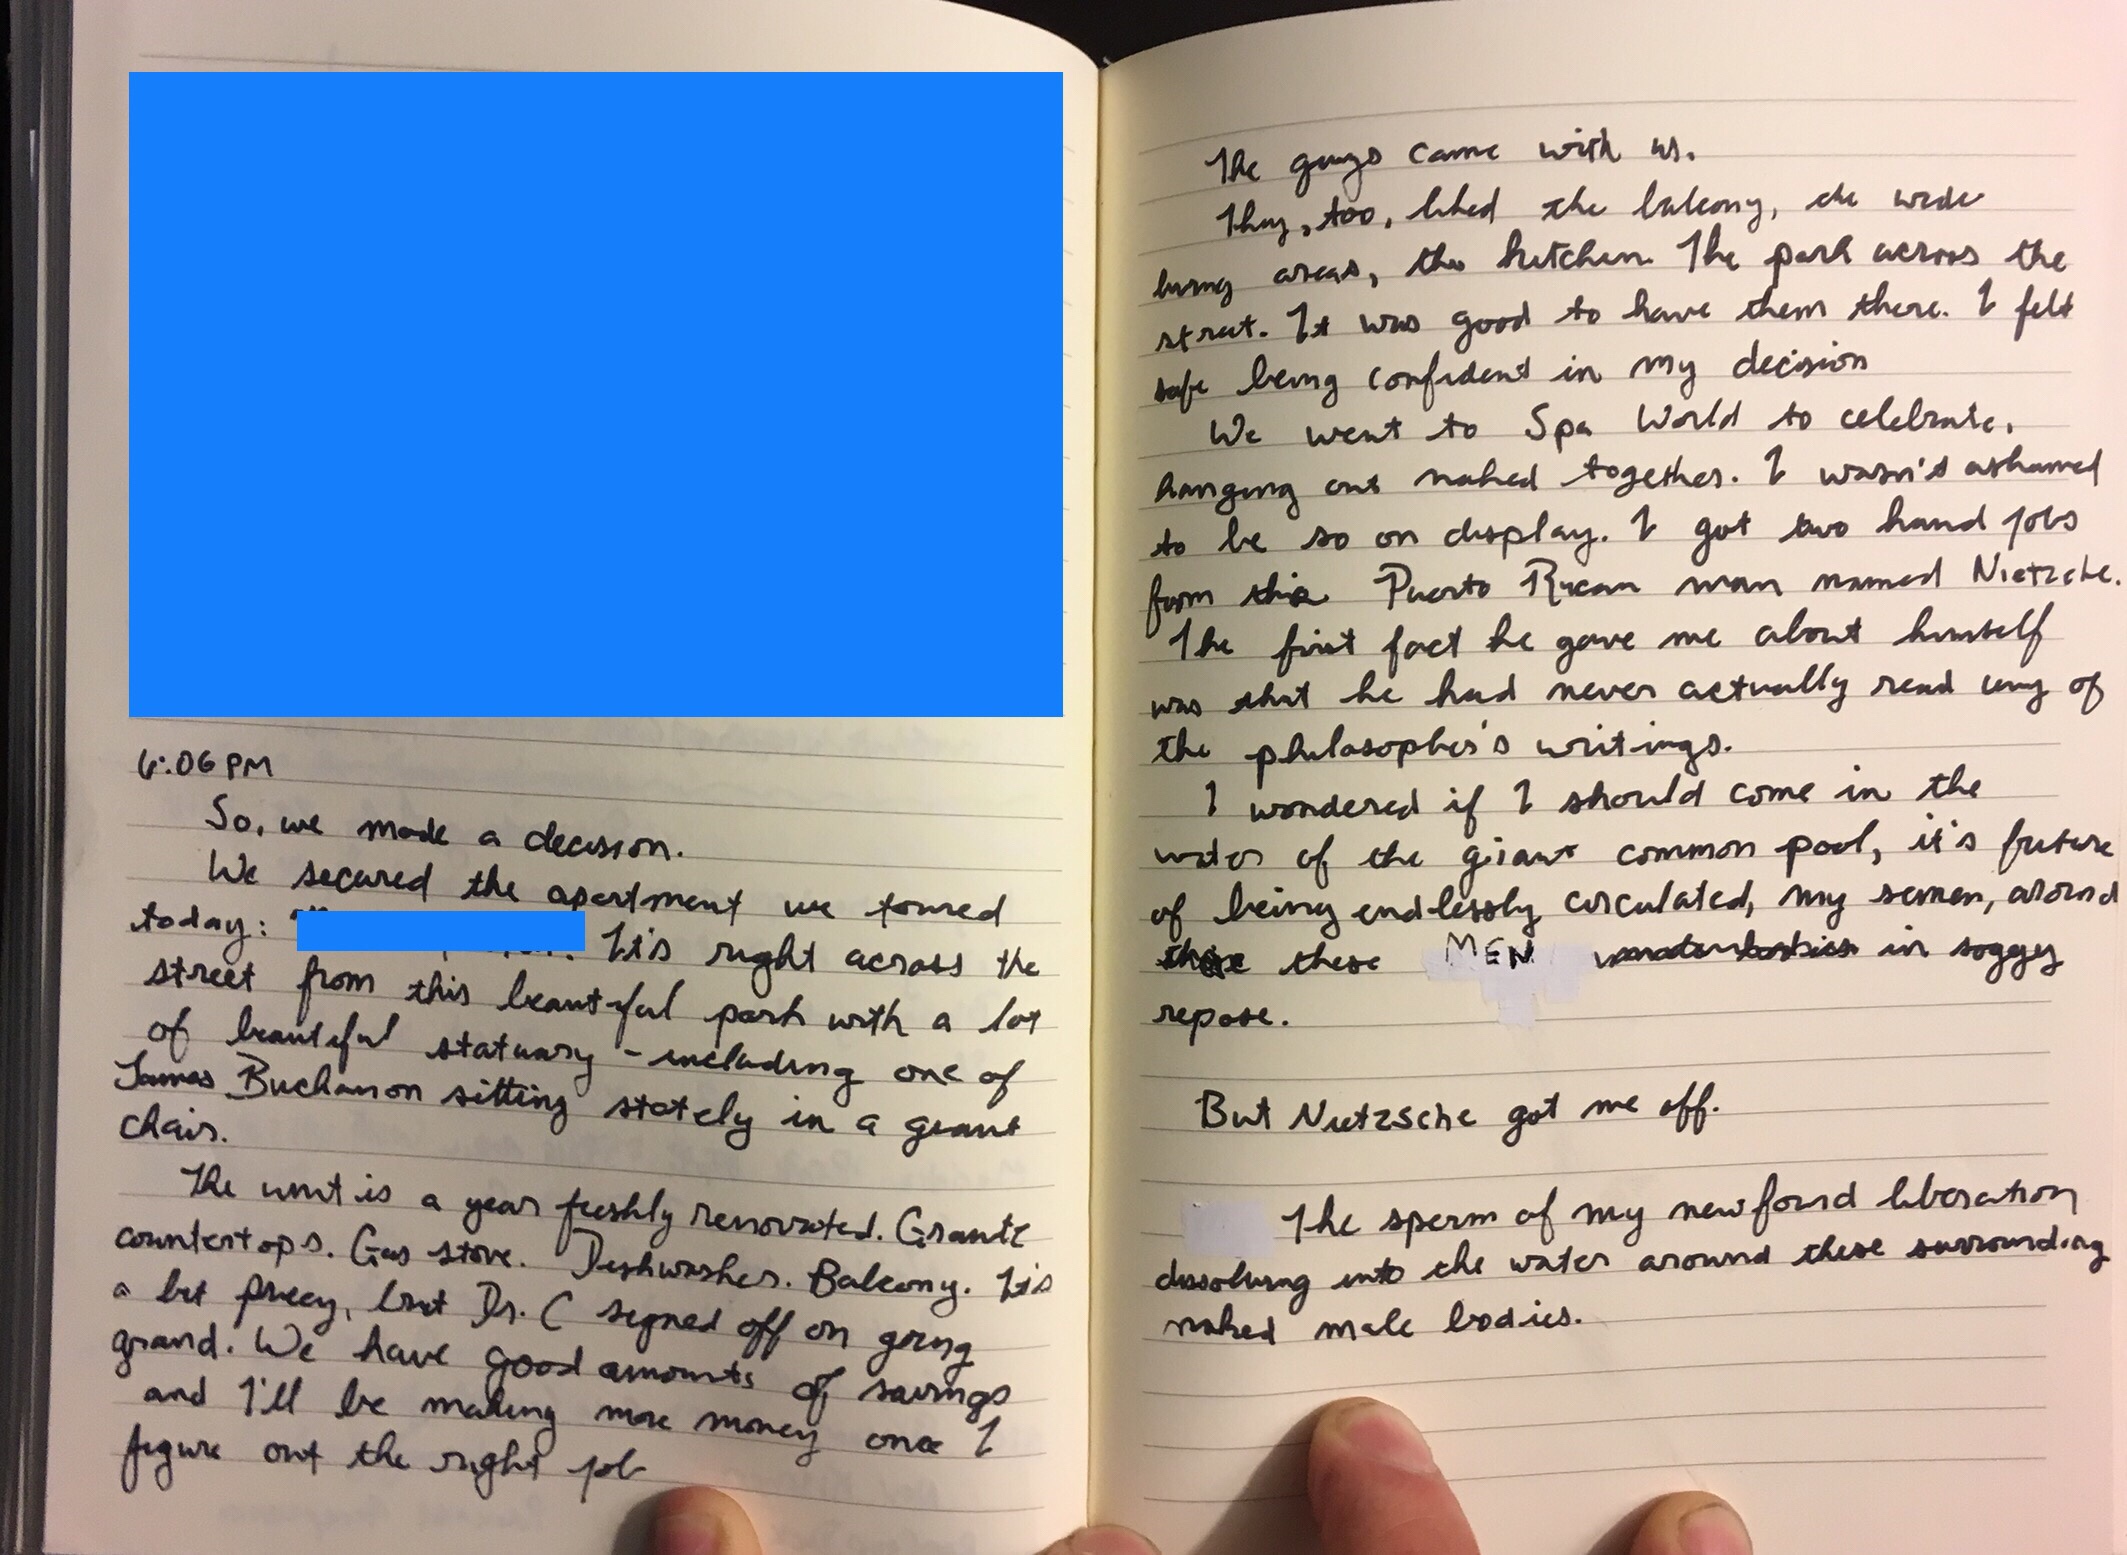 6:06 PM
So, we made a decision.
We secured the apartment we toured
today: It's right across the
street from this beautiful park with a lot
of beautiful statuary - including one of
James Buchanon sitting stately in a giant
chair.
The unit is a year freshly renovated. Granite
countertops. Gas stove. Dishwasher. Balcony. It's
a bit pricey, but Dr. C signed off on going
grand. We have good amounts of savings
and I'll be making more money once I
figure out the right job
The guys came with us.
They, too, liked the balcony, the wide
living areas, the kitchen. The park across the
street. It was good to have them there. I felt
safe being confident in my decision
We went to Spa World to celebrate,
hanging out naked together. I wasn't ashamed
to be so on display. I got two hand jobs
from this Puerto Rican man named Nietzche.
The first fact he gave me about himself
was that he had never actually read any of
the philosopher's writings.
I wondered if I should come in the
water of the giant common pool, it's future
of being endlessly circulated, my semen, around
these MEN in soggy
repose.
But Nietzsche got me off.
The sperm of my newfound liberation
dissolving into the water around these surrounding
naked male bodies.